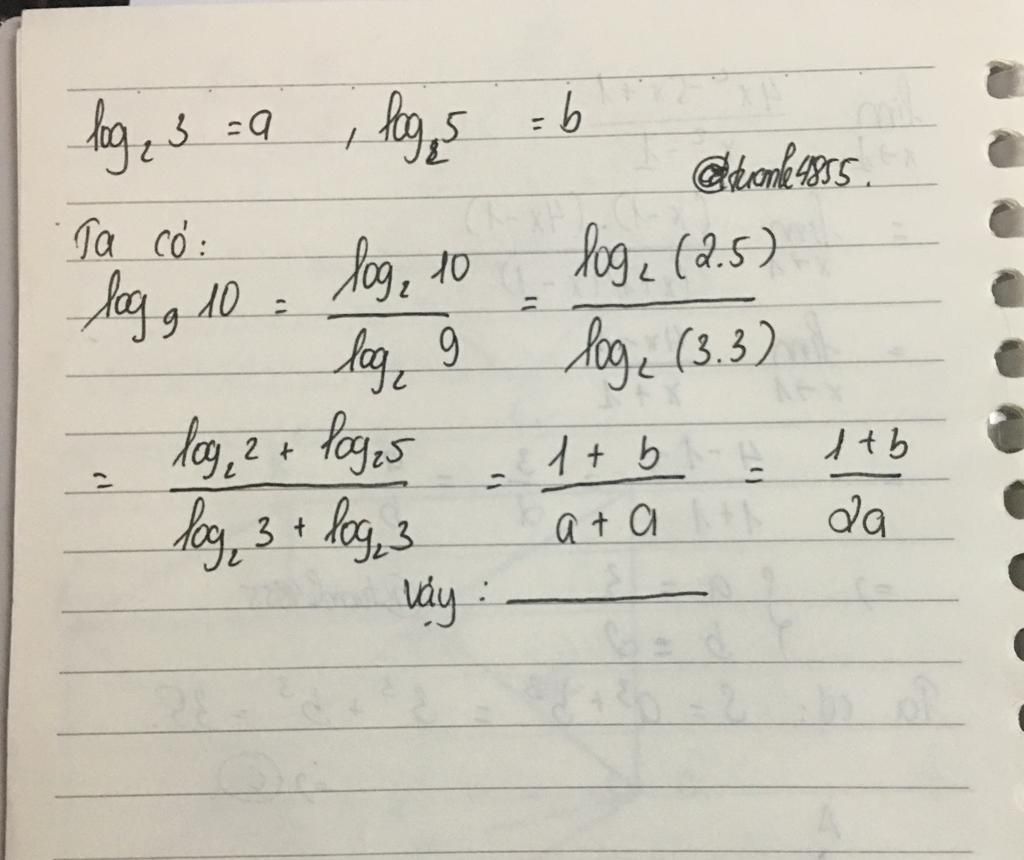 log₂ 3 = a , log₂ 5 = b
Ta có:
log₉ 10 = log₂ 10 / log₂ 9 = log₂ (2.5) / log₂ (3.3)
= (log₂ 2 + log₂ 5) / (log₂ 3 + log₂ 3) = (1 + b) / (a + a) = (1 + b) / 2a
Vậy :